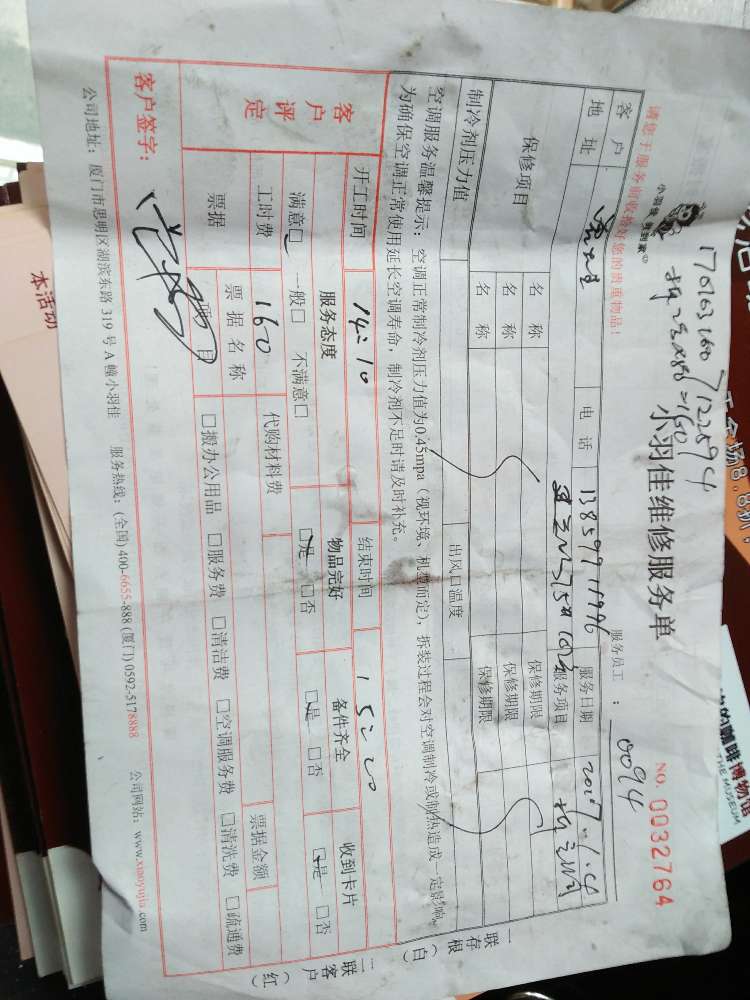 170163160
7122594
=160
小羽佳 到家
小羽佳维修服务单
NO. 0032764
请您于服务前收拾好您的贵重物品!
服务员工: 0094
客户
电话
服务日期 2017.1.
地址
服务项目
保修项目
名称
保修期限
名称
保修期限
名称
保修期限
制冷剂压力值
出风口温度
空调服务温馨提示: 空调正常制冷剂压力值为0.45mpa (视环境、机型而定), 拆装过程会对空调制冷或制热造成一定影响。
为确保空调正常使用延长空调寿命, 制冷剂不足时请及时补充。
一联存根(白)
二联客户(红)
客户评定
开工时间 14:10
结束时间 15:20
服务态度
物品完好
备件齐全
收到卡片
满意□ 一般□ 不满意□
□是 □否
□是 □否
□是 □否
工时费 160
代购材料费
票据
票据名称
票据金额
项目
□搬办公用品 □服务费 □清洁费 □空调服务费 □清洗费 □疏通费
客户签字:
公司地址: 厦门市思明区湖滨东路319号A幢小羽佳 服务热线: (全国) 400-6655-888 (厦门) 0592-5178888 公司网站: www.xiaoyujia.com
本活动
THE MUSEUM